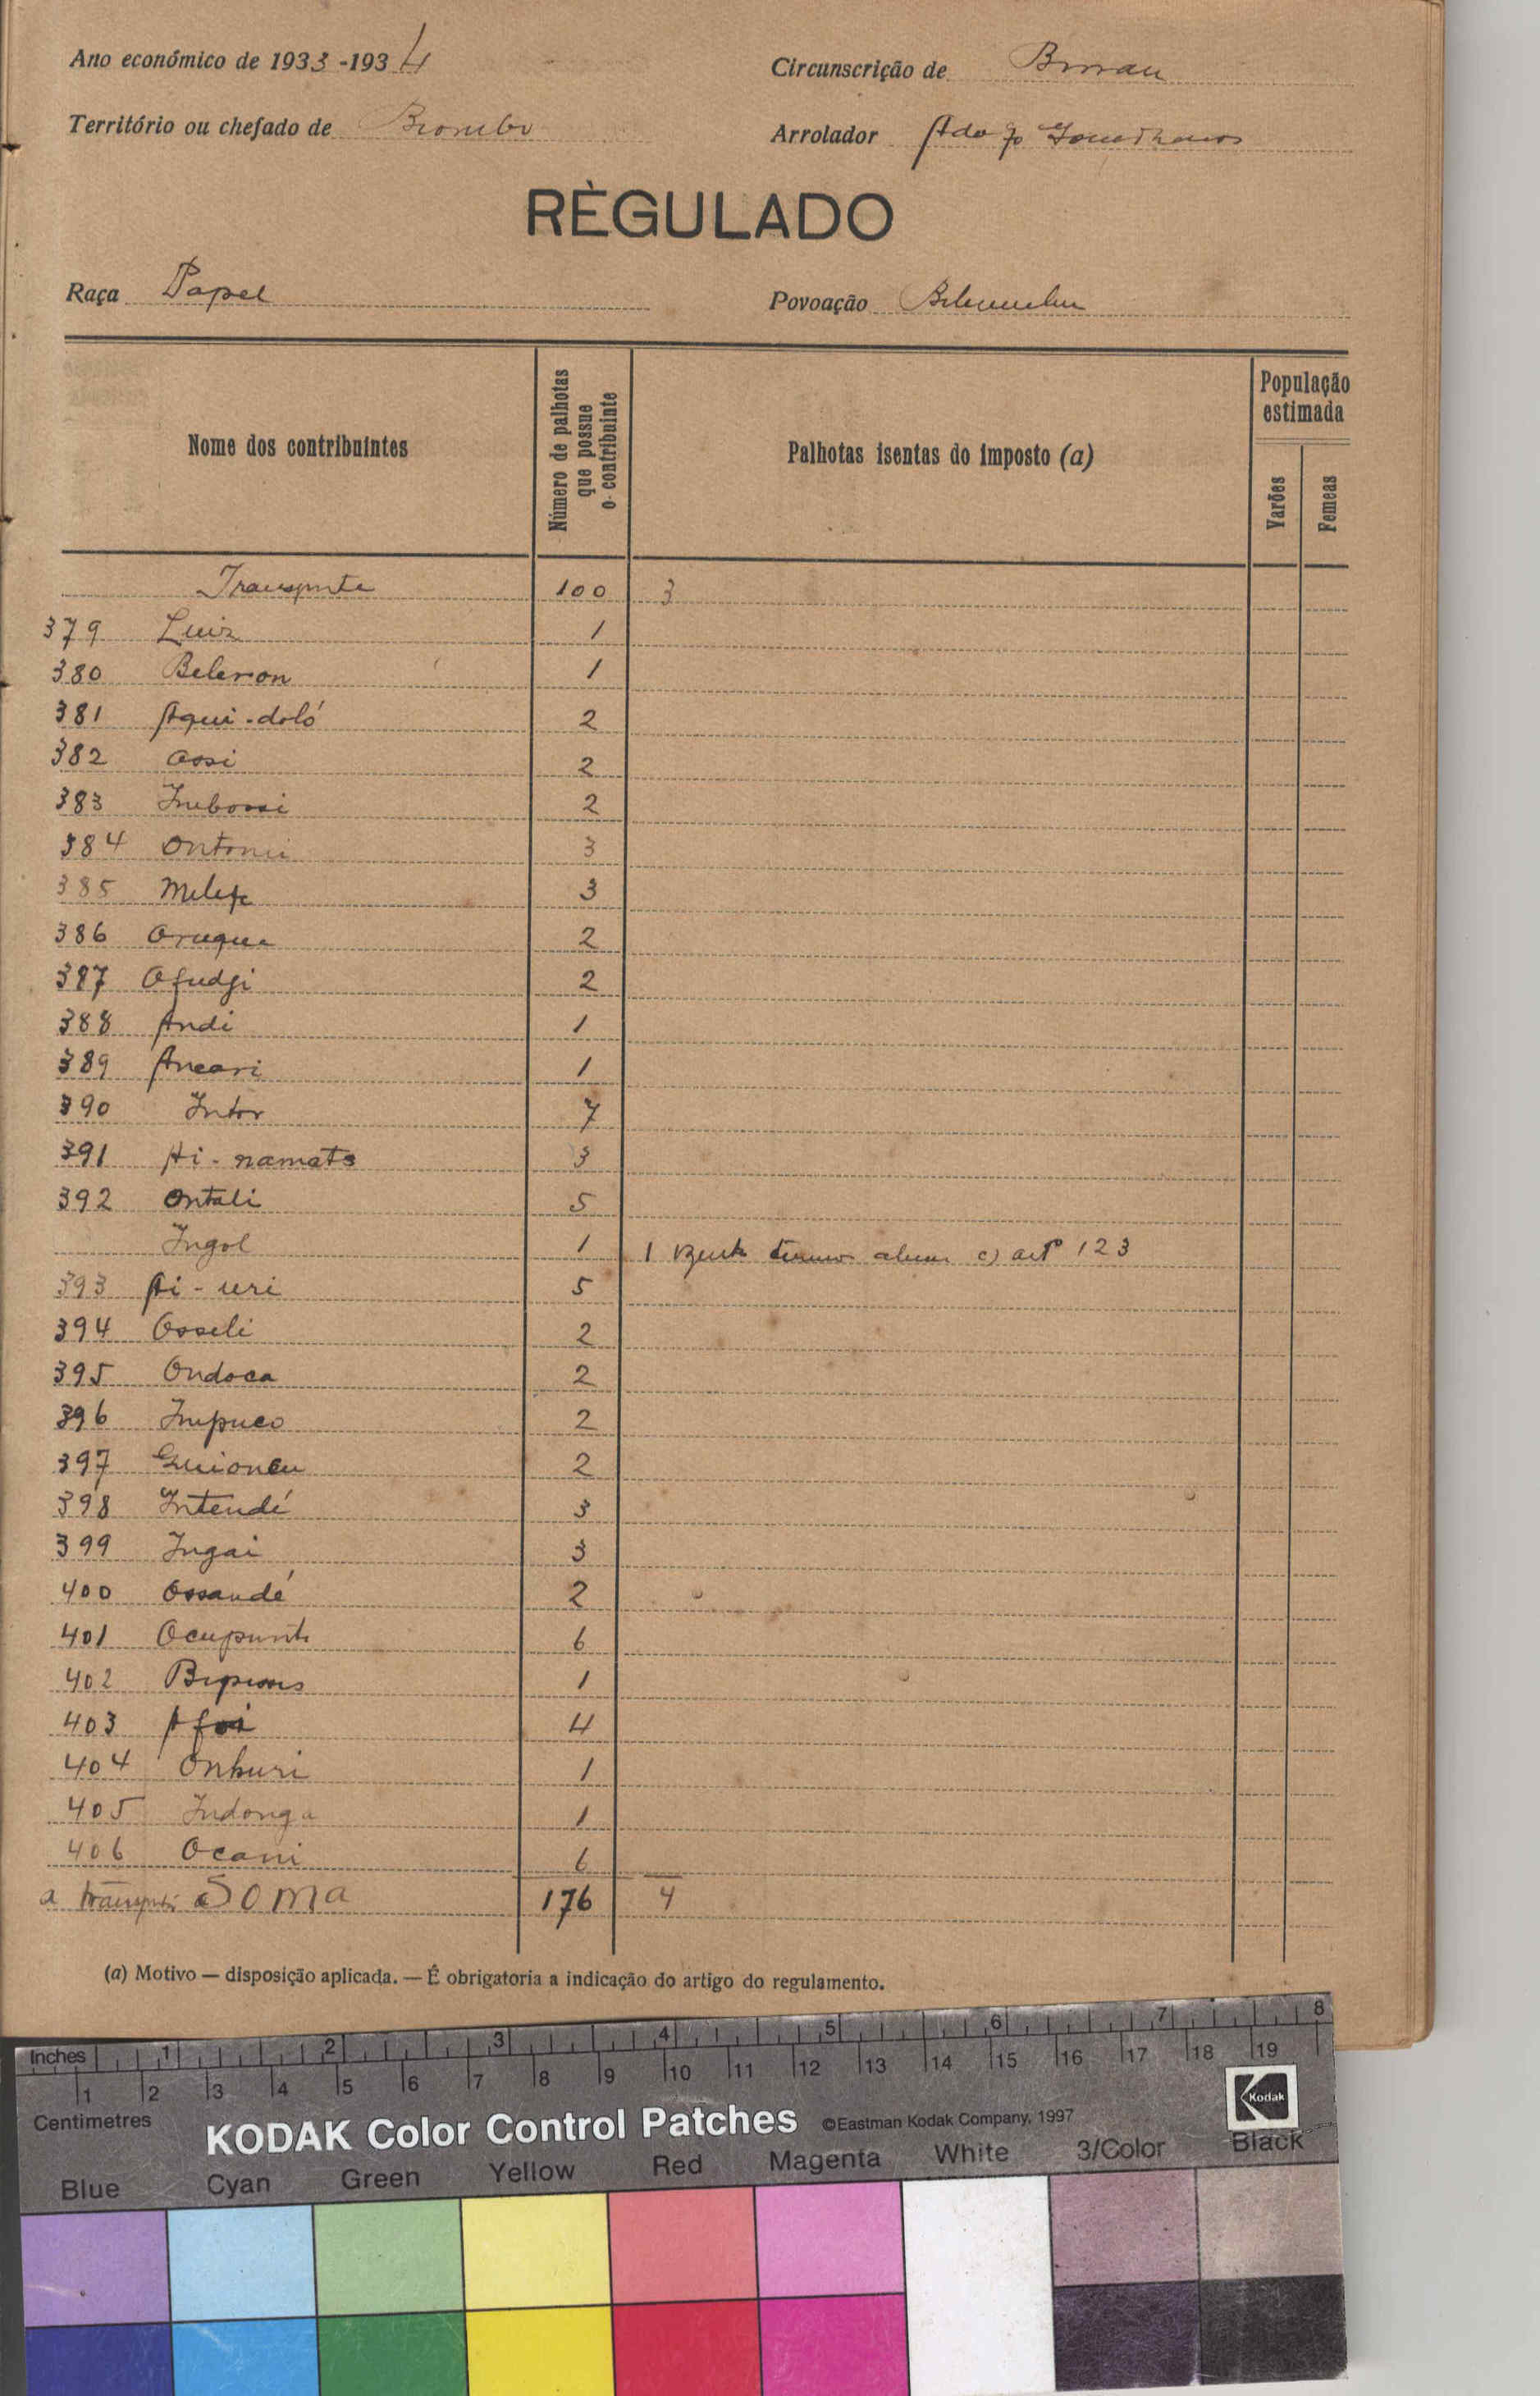 Ano económico de 1933-1934
Circunscrição de
Território ou chefado de Biombo
Arrolador
RÈGULADO
Raça Papel
Povoação
Nome dos contribuintes
Número de palhotas que possue o contribuinte
Palhotas isentas do imposto (a)
População estimada
Varões
Femeas
Transporte 100 3
379 Luiz 1
380 1
381 Aqui-doló 2
382 Ossi 2
383 2
384 3
385 3
386 2
387 Ofudgi 2
388 Andi 1
389 Ancari 1
390 Intor 7
391 Ai-namato 3
392 Ontali 5
Ingol 1 1 c) artº 123
393 Ai-uri 5
394 Osseli 2
395 Ondoca 2
396 Impuco 2
397 2
398 Intendé 3
399 Ingai 3
400 Ossandé 2
401 6
402 1
403 Afoi 4
404 1
405 Indonga 1
406 Ocani 6
a Soma 176 4
(a) Motivo — disposição aplicada. — É obrigatoria a indicação do artigo do regulamento.
Inches 1 2 3 4 5 6 7 8
1 2 3 4 5 6 7 8 9 10 11 12 13 14 15 16 17 18 19
Centimetres
KODAK Color Control Patches ©Eastman Kodak Company, 1997
Kodak
Blue Cyan Green Yellow Red Magenta White 3/Color Black